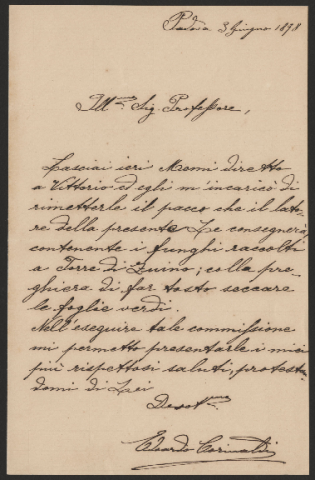 Padova 3 Giugno 1878
Ill.mo Sig. Professore,
Lasciai ieri Momi diretto
a Vittorio ed egli m'incaricò di
rimetterle il pacco che il lato-
re della presente Le consegnerà,
contenente i funghi raccolti
a Torre di Zuino; colla pre-
ghiera di far tosto seccare
le foglie verdi.
Nell'eseguire tale commissione
mi permetto presentarle i miei
più rispettosi saluti, protestan
domi di Lei
Devot.mo
Edoardo